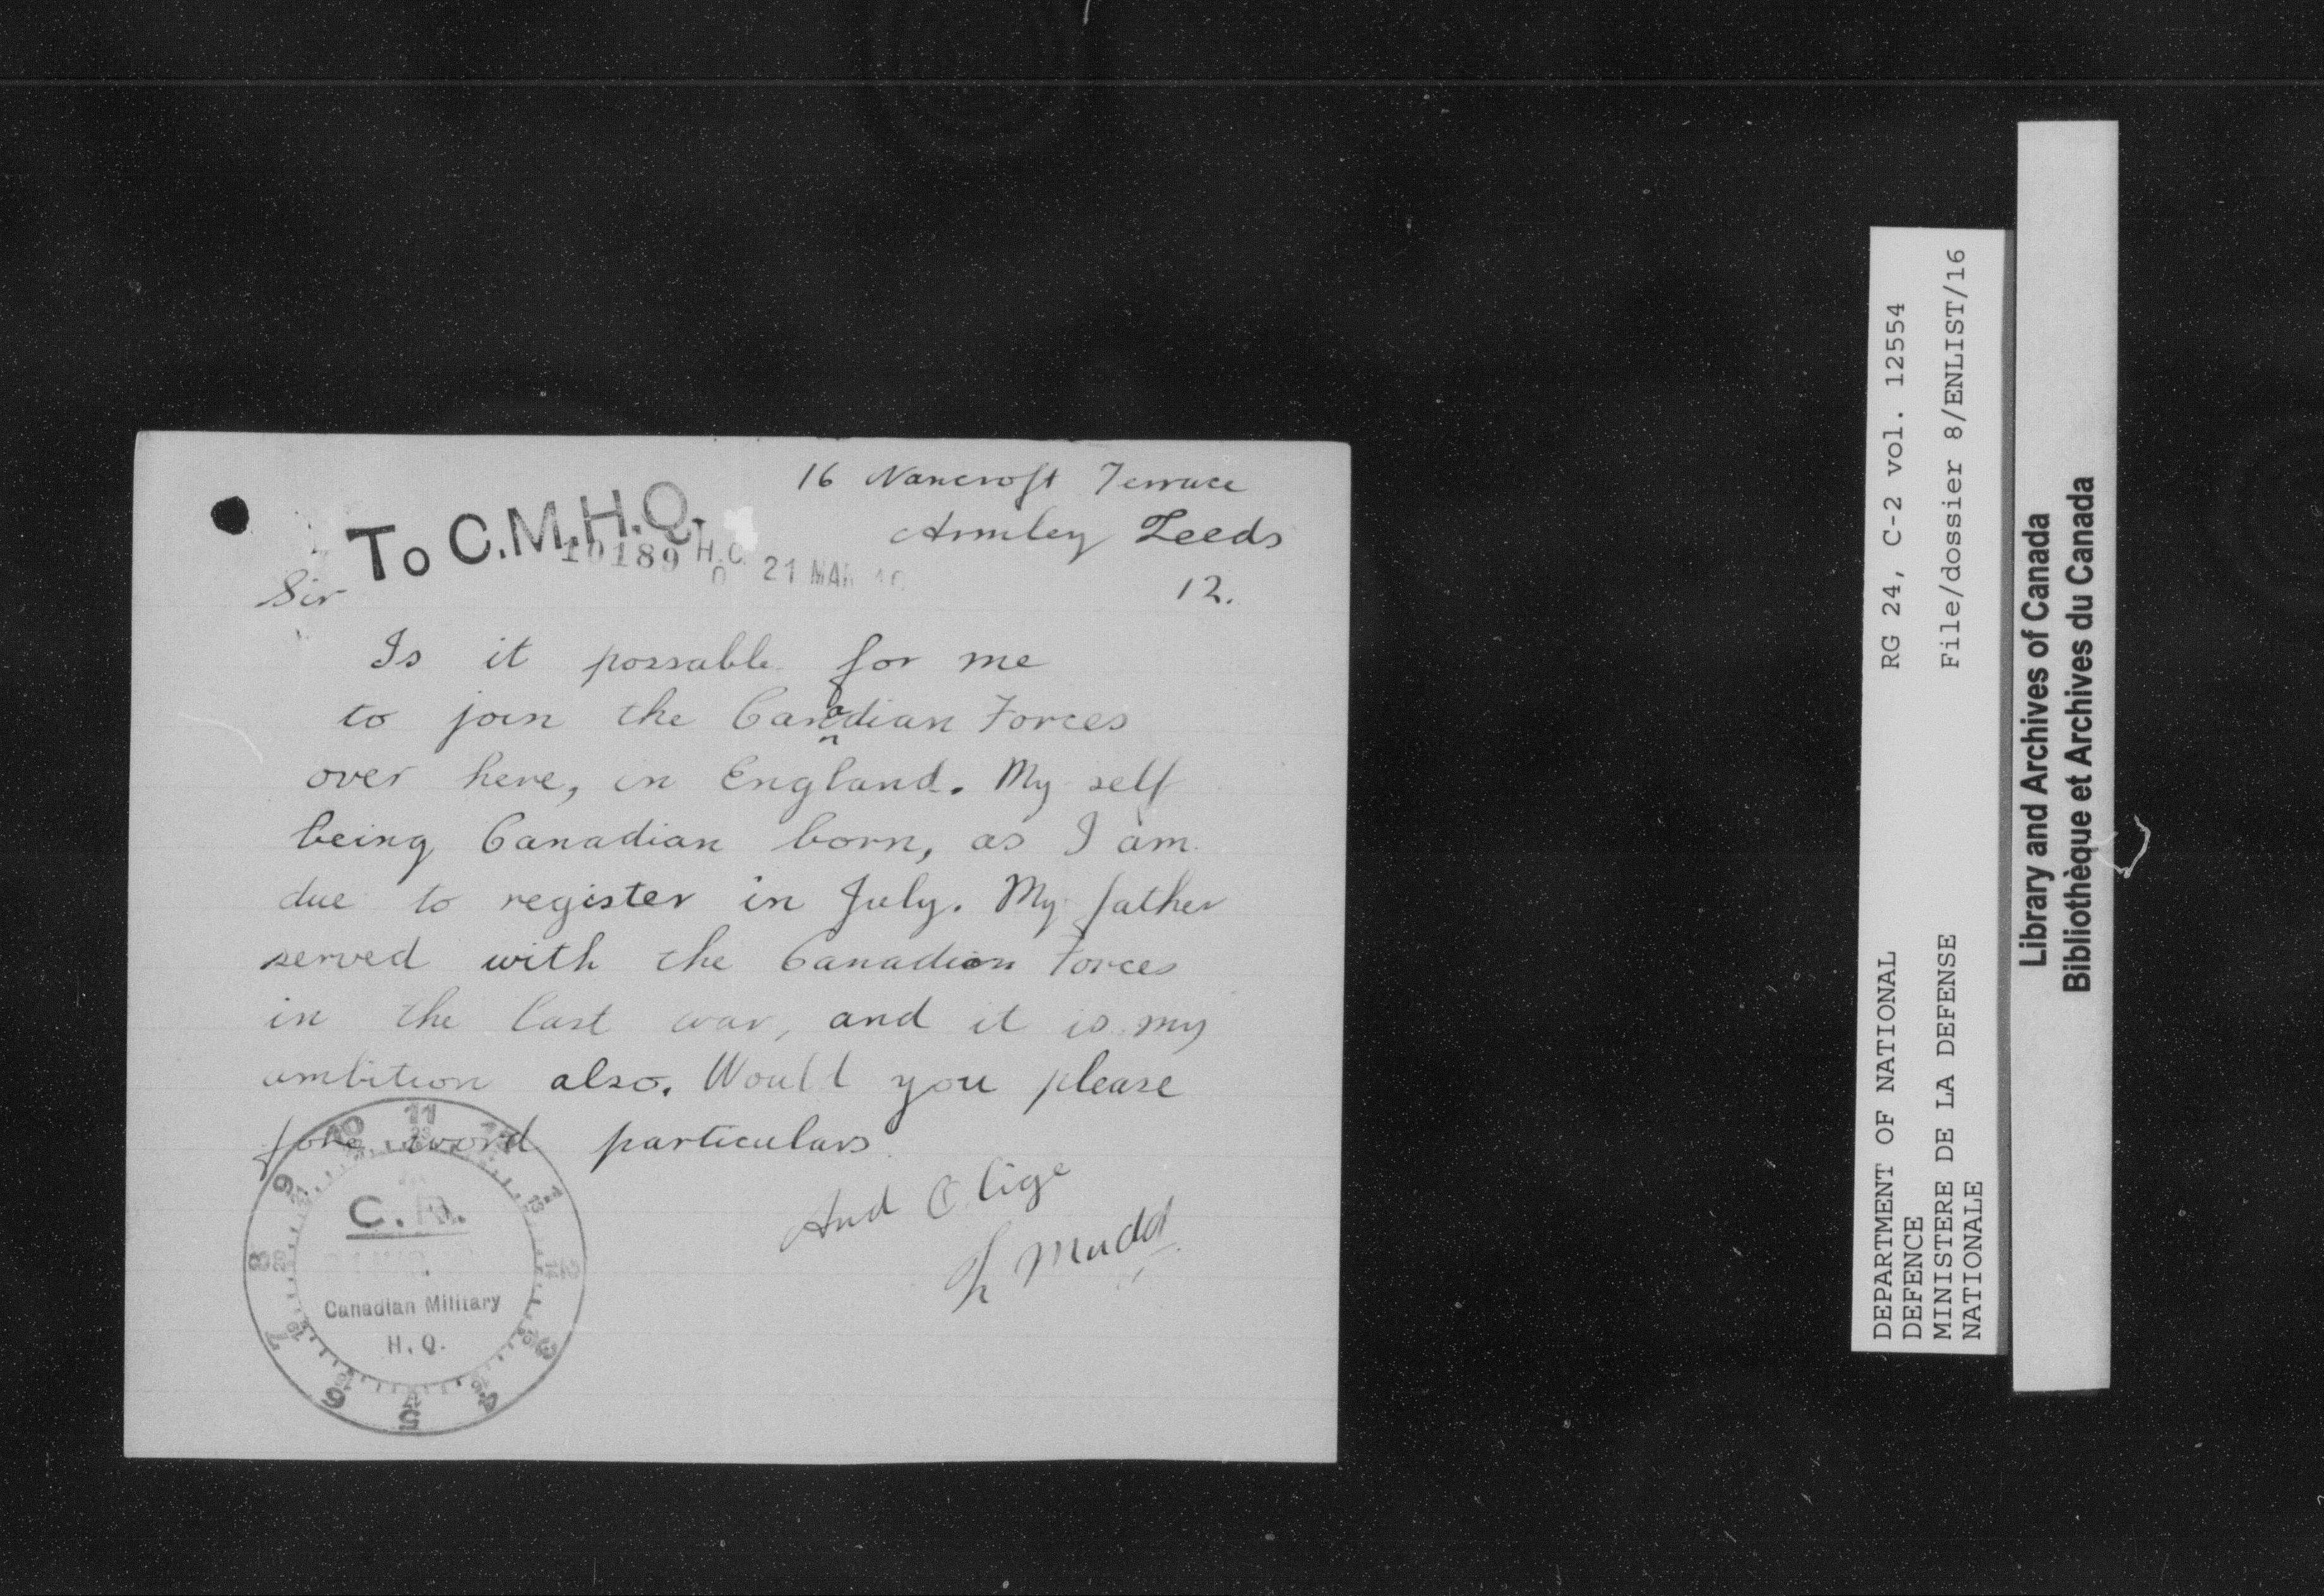 16 Nancroft Terrace
Armley Leeds
12.
To C.M.H.Q.
19189 H.C. 21 MAR
Sir
Is it possable for me
to join the Canadian Forces
over here, in England. My self
being Canadian born, as I am
due to register in July. My father
served with the Canadian Forces
in the last war, and it is my
ambition also. Would you please
fore word particulars
And Olige
Mudd
11
10
9
8
7
6
5
4
3
2
1
C.R.
Canadian Military
H.Q.
DEPARTMENT OF NATIONAL RG 24, C-2 vol. 12554
DEFENCE
MINISTERE DE LA DEFENSE File/dossier 8/ENLIST/16
NATIONALE
Library and Archives of Canada
Bibliothèque et Archives du Canada